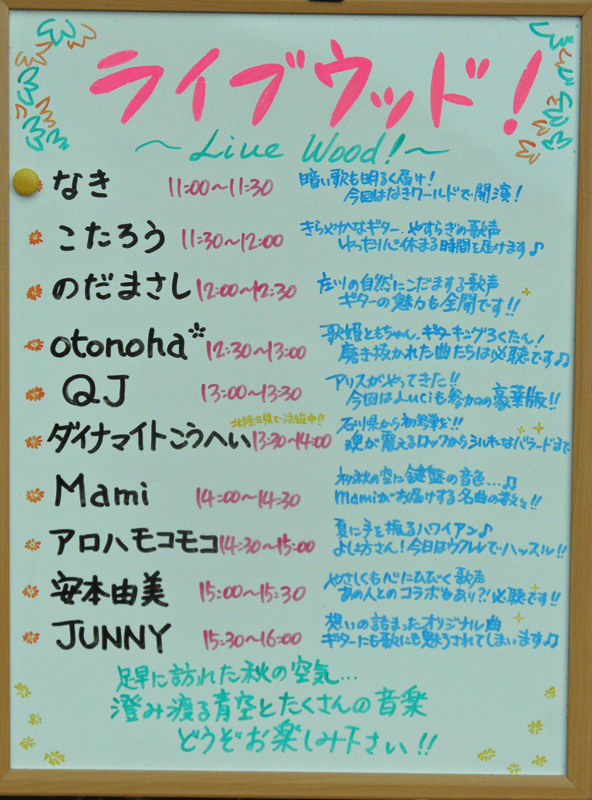 ライブウッド!
〜Live Wood!〜
なき 11:00〜11:30 暗い歌も明るく届け!
今回はなきワールドで開演!
こたろう 11:30〜12:00 きらやかなギター、やすらぎの歌声
ゆったり心休まる時間を届けます♪
のだまさし 12:00〜12:30 庄川の自然にこだまする歌声
ギターの魅力も全開です!!
otonoha* 12:30〜13:00 歌姫ともちゃん、ギターキングろくたん!
磨き抜かれた曲たちは必聴です♪
QJ 13:00〜13:30 アリスがやってきた!!
今回はLuciも参加の豪華版!!
北陸三県で活躍中!!
ダイナマイトこうへい 13:30〜14:00 石川県から初登場!!
魂が震えるロックからシルキーなバラードまで
Mami 14:00〜14:30 初秋の空に鍵盤の音色...♪
Mamiがお届けする名曲の数々!!
アロハモコモコ 14:30〜15:00 夏に手を振るハワイアン♪
よしけ方さん!今日はウクレレでハッスル!!
安本由美 15:00〜15:30 やさしくも心にひびく歌声
あの人とのコラボもあり?!必聴です!!
JUNNY 15:30〜16:00 想いの詰まったオリジナル曲
ギターにも歌にも魅了されてしまいます♪
足早に訪れた秋の空気...
澄み渡る青空とたくさんの音楽
どうぞお楽しみ下さい!!